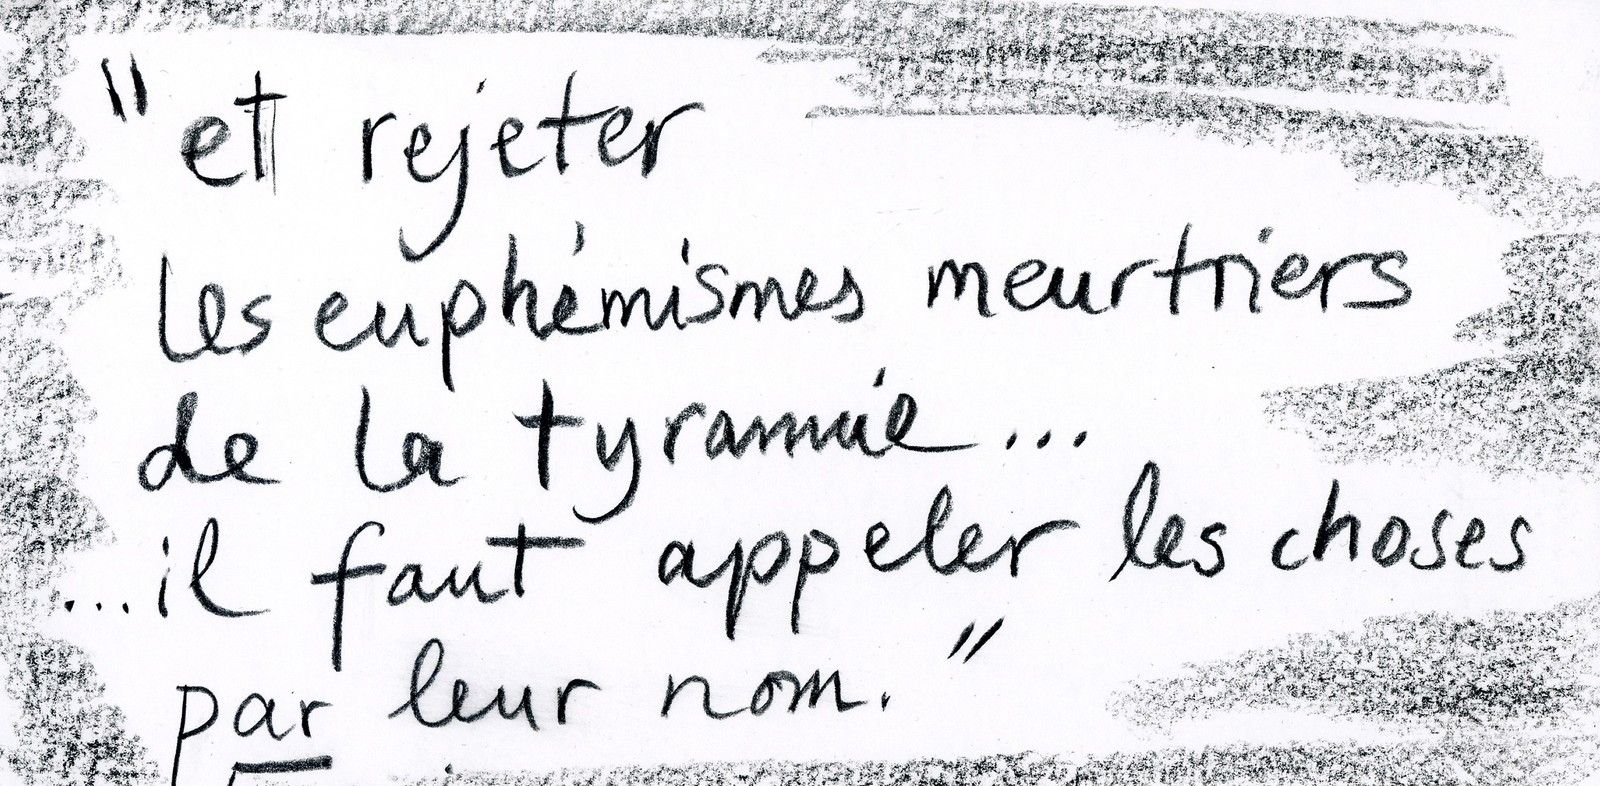 "et rejeter
les euphémismes meurtriers
de la tyrannie...
...il faut appeler les choses
par leur nom."